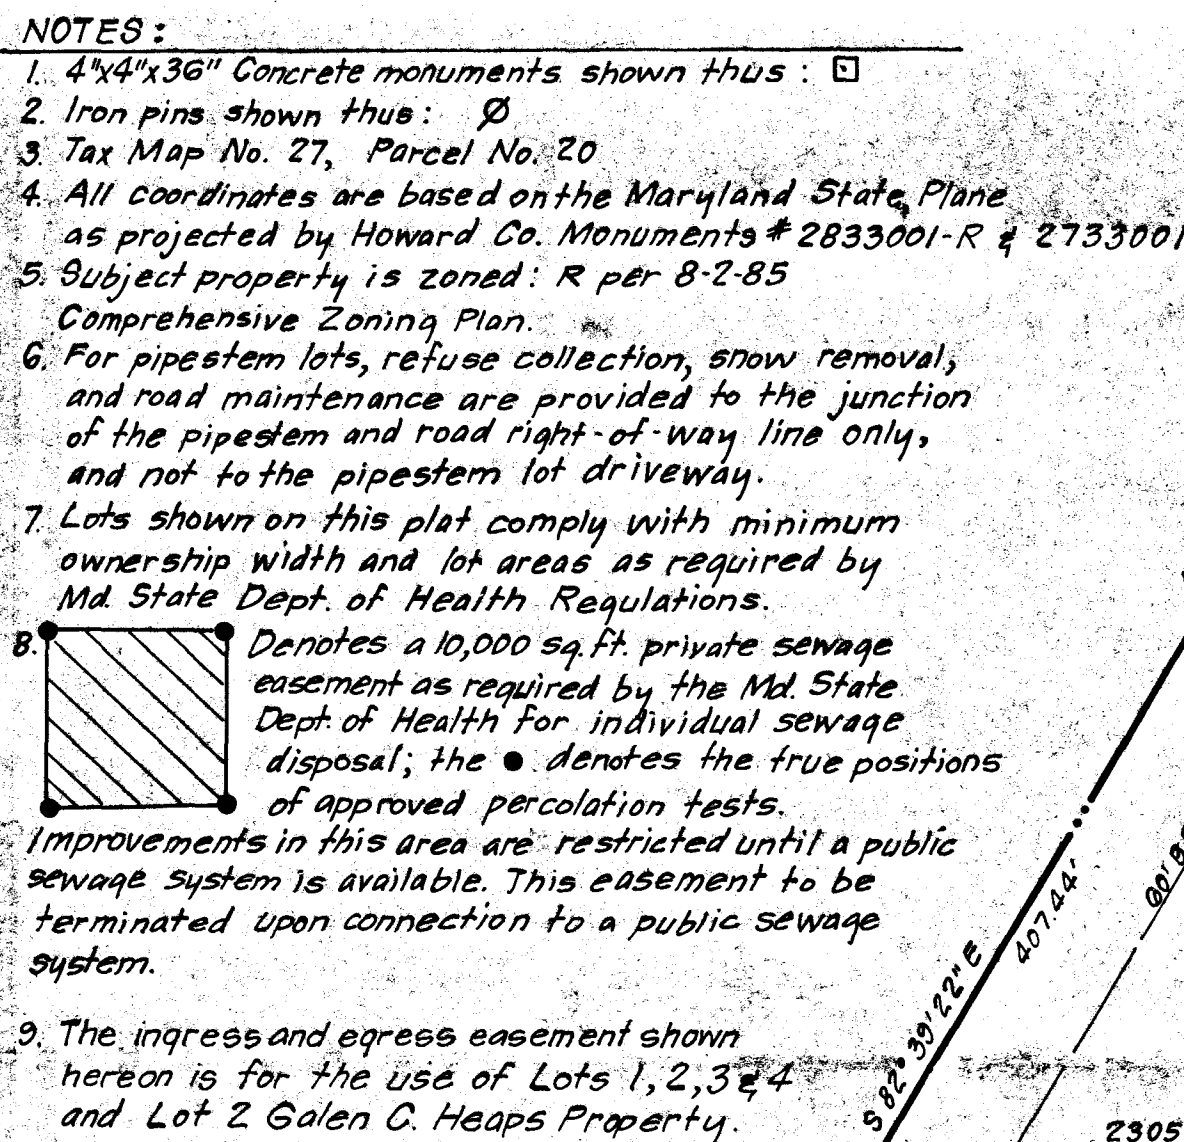 NOTES:
1. 4"x4"x36" Concrete monuments shown thus: ⊡
2. Iron pins shown thus: Ø
3. Tax Map No. 27, Parcel No. 20
4. All coordinates are based on the Maryland State, Plane
as projected by Howard Co. Monuments # 2833001-R & 2733001
5. Subject property is zoned: R per 8-2-85
Comprehensive Zoning Plan.
6. For pipestem lots, refuse collection, snow removal,
and road maintenance are provided to the junction
of the pipestem and road right-of-way line only,
and not to the pipestem lot driveway.
7. Lots shown on this plat comply with minimum
ownership width and lot areas as required by
Md. State Dept. of Health Regulations.
8. Denotes a 10,000 sq.ft. private sewage
easement as required by the Md. State
Dept. of Health for individual sewage
disposal; the ● denotes the true positions
of approved percolation tests.
Improvements in this area are restricted until a public
sewage system is available. This easement to be
terminated upon connection to a public sewage
system.
9. The ingress and egress easement shown
hereon is for the use of Lots 1,2,3 & 4
and Lot 2 Galen C. Heaps Property.
S 82° 39' 22" E
407.44'
2305